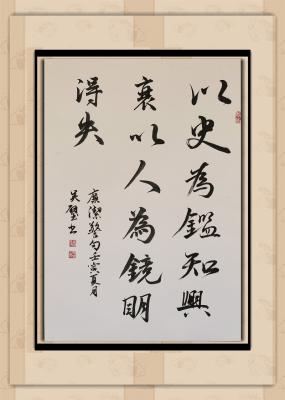 以史為鑑知興
衰以人為鏡明
得失
廉潔警句壬寅夏月
吴璧书